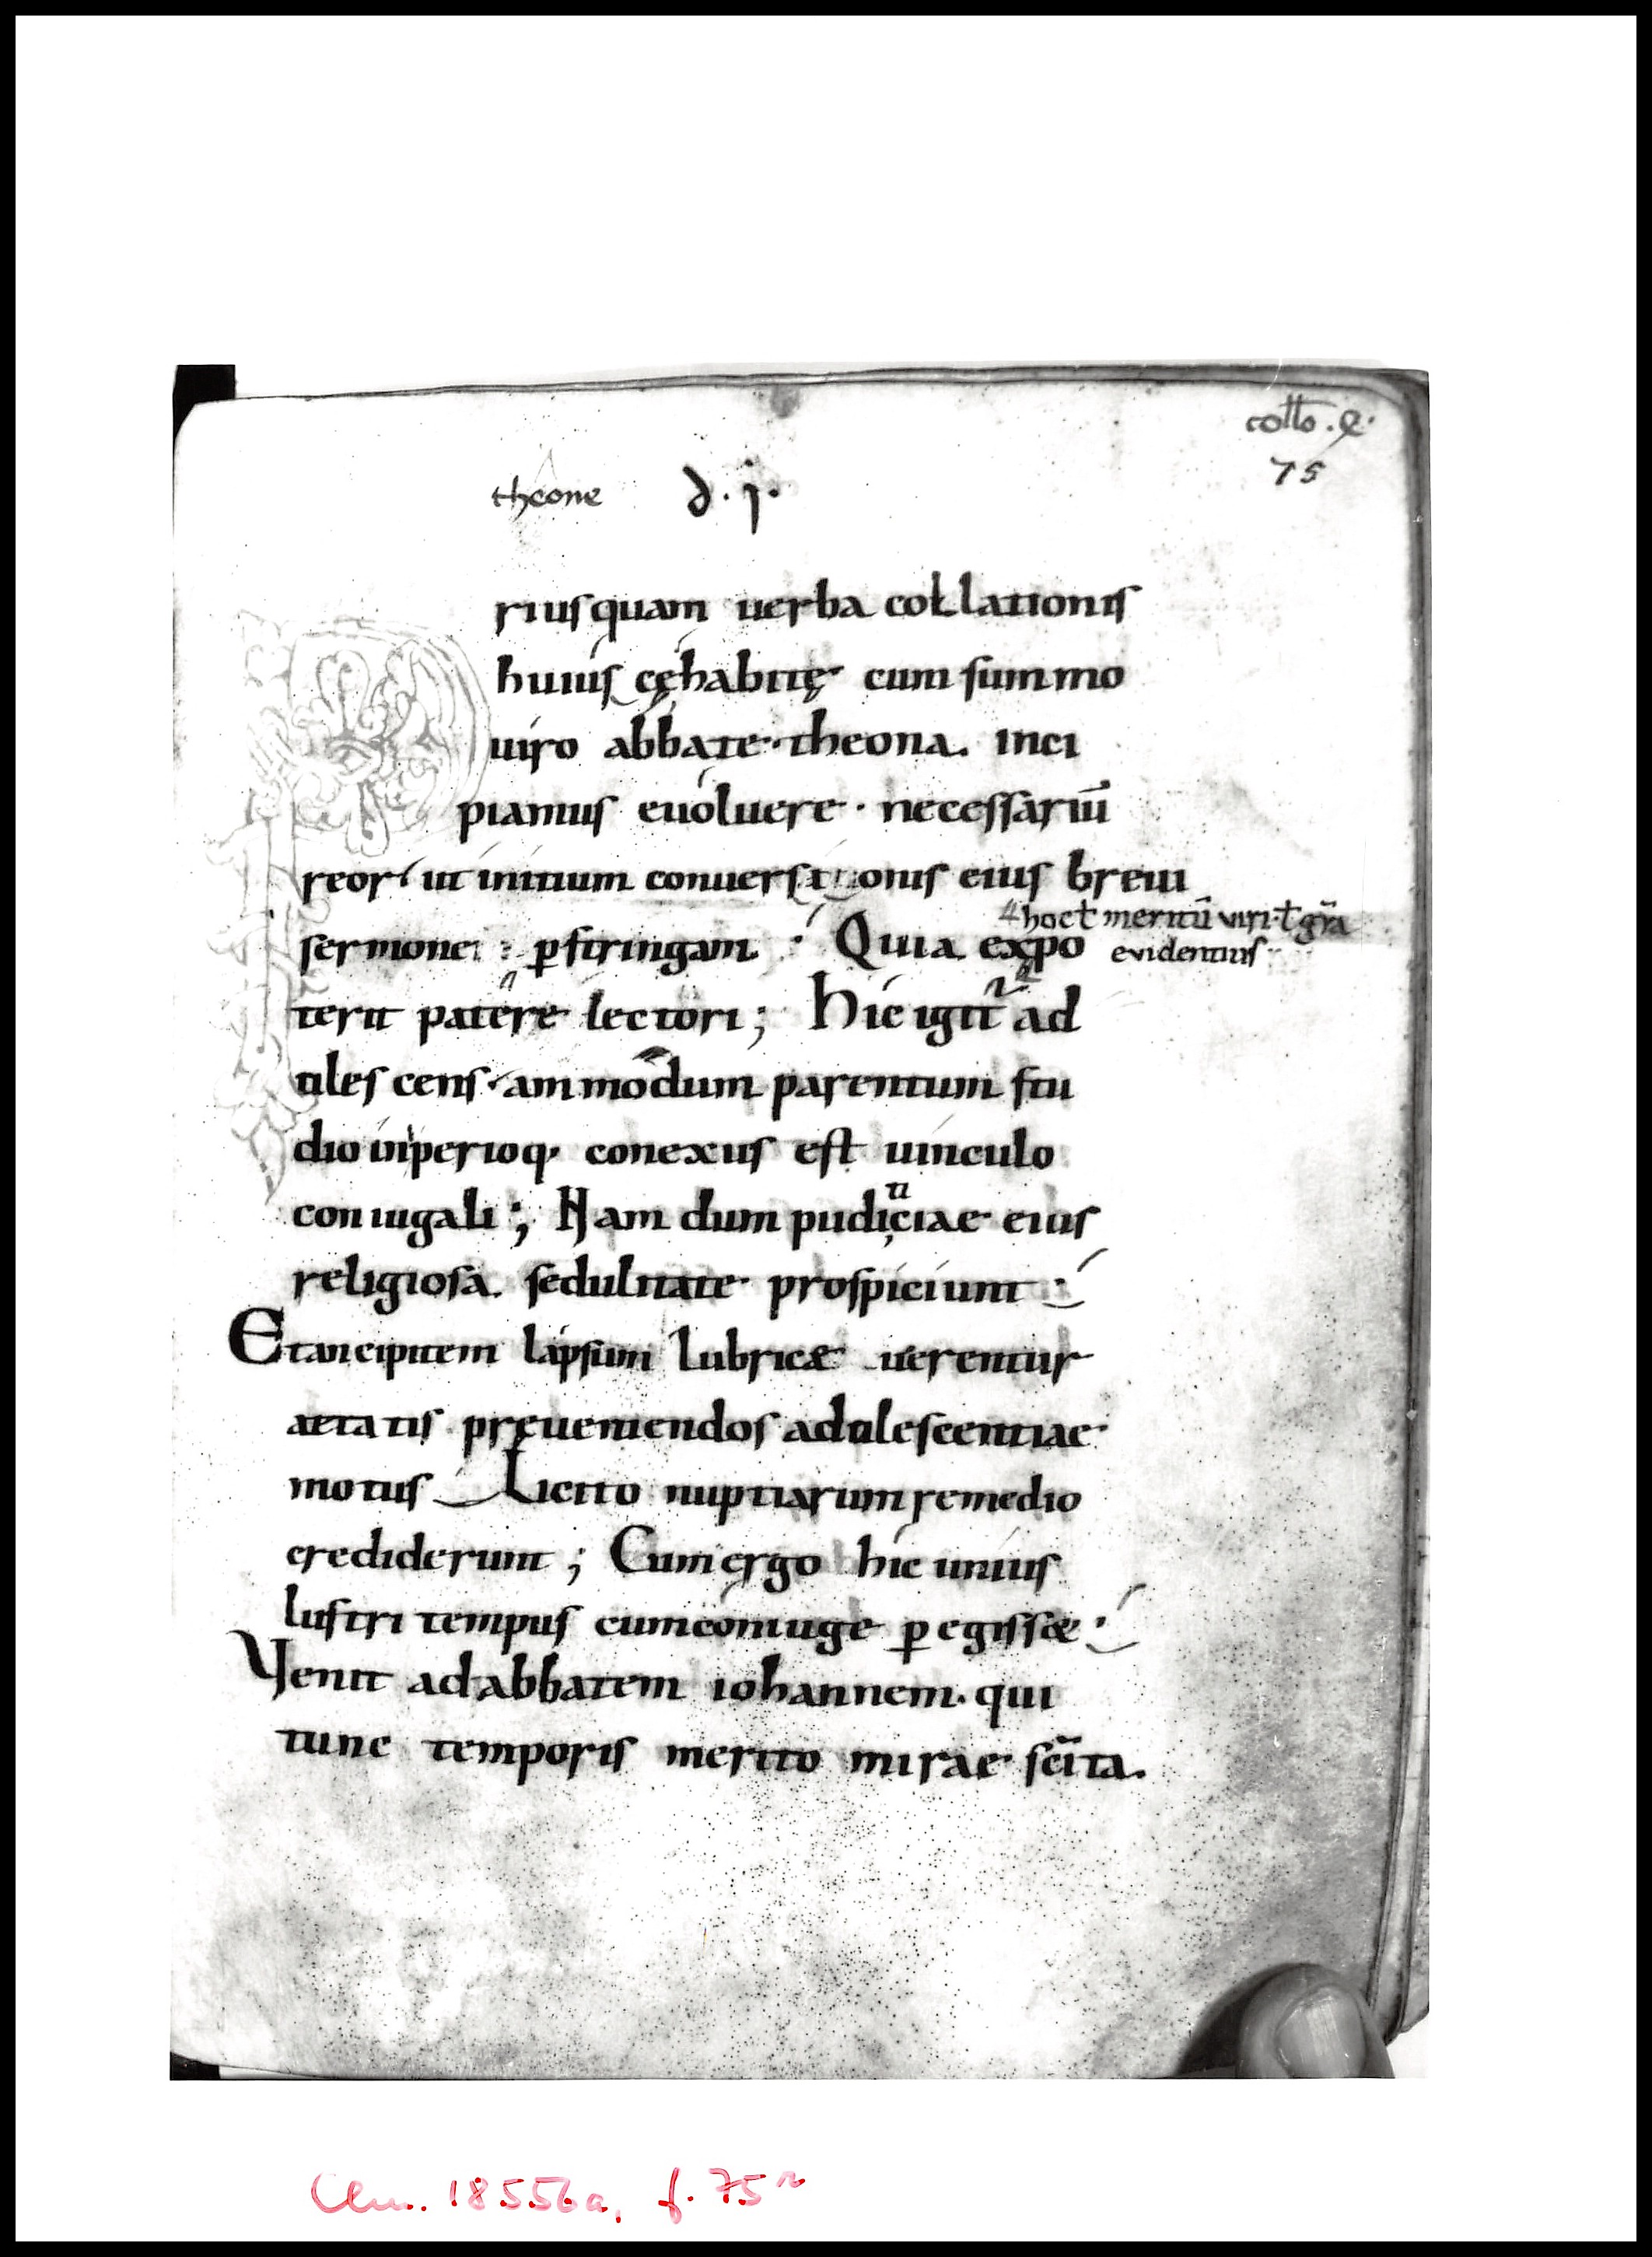 collo .
75
theone d. j.
riusquam uerba collationis
huius cę habitę cum summo
uiro abbate theona. Inci
piamus euoluere. necessariū
reor ut initium conuersationis eius breui
⁊ hoc ł meritū viri ł gr̄a
sermone : ꝑstringam. Quia expo
evidentius
terit patere lectori; Hic igit᷑ ad
ules cens. ammodum parentum stu
dio inperioq. conexus est uinculo
coniugali; Nam dum pudiciae eius
ti
religiosa. sedulitate prospiciunt
Et ancipitem lapsum lubricæ uerentur
aetatis pręueniendos adulescentiae
motus Licito nuptiarum remedio
crediderunt; Cum ergo hic unius
lustri tempus cum coniuge ꝑegissæ
Venit ad abbatem iohannem. qui
tunc temporis merito mirae sc̄ita.
Clm. 18556a, f. 75r